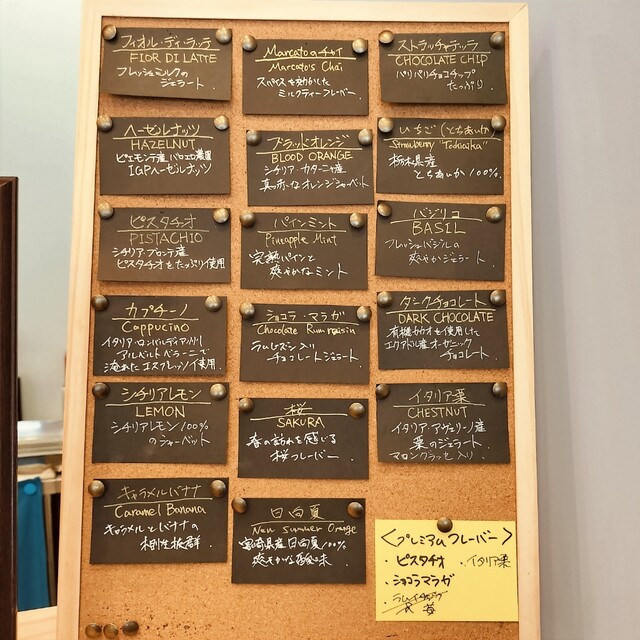 フィオル・ディ・ラッテ
FIOR DI LATTE
フレッシュミルクの
ジェラート.
Marcatoのチャイ
Marcato's Chai
スパイスを効かした
ミルクティーフレーバー.
ストラッチャテッラ
CHOCOLATE CHIP
パリパリチョコチップ
たっぷり.
ヘーゼルナッツ
HAZELNUT
ピエモンテ産
IGPヘーゼルナッツ
ブラッドオレンジ
BLOOD ORANGE
シチリア・カターニャ産
真っ赤なオレンジシャーベット
いちご(とちあいか)
Strawberry "Tochiaika"
栃木県産
とちあいか100%.
ピスタチオ
PISTACHIO
シチリア・ブロンテ産
ピスタチオをたっぷり使用
パインミント
Pineapple Mint
完熟パインと
爽やかなミント
バジリコ
BASIL
フレッシュバジルの
爽やかジェラート.
カプチーノ
Cappucino
イタリア・ロンバルディア州
アルベルトベラーニで
淹れたエスプレッソ使用.
ショコラ・マラガ
Chocolate Rum raisin
ラムレーズン入り
チョコレートジェラート.
ダークチョコレート
DARK CHOCOLATE
有機カカオを使用した
エクアドル産オーガニック
チョコレート.
シチリアレモン
LEMON
シチリアレモン100%
のシャーベット.
桜
SAKURA
春の訪れを感じる
桜フレーバー.
イタリア栗
CHESTNUT
イタリア・アヴェリーノ産
栗のジェラート.
マロングラッセ入り.
キャラメルバナナ
Caramel Banana
キャラメルとバナナの
相性抜群.
日向夏
New Summer Orange
宮崎県産日向夏100%
爽やかな酸味.
<プレミアムフレーバー>
・ピスタチオ ・イタリア栗
・ショコラマラガ